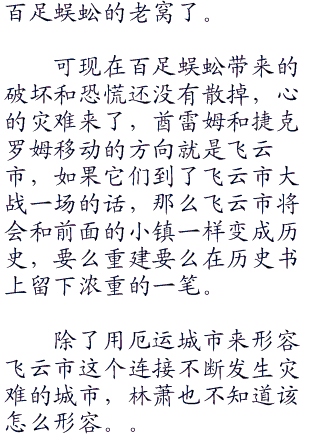 百足蜈蚣的老窝了。
可现在百足蜈蚣带来的
破坏和恐慌还没有散掉，心
的灾难来了，酋雷姆和捷克
罗姆移动的方向就是飞云
市，如果它们到了飞云市大
战一场的话，那么飞云市将
会和前面的小镇一样变成历
史，要么重建要么在历史书
上留下浓重的一笔。
除了用厄运城市来形容
飞云市这个连接不断发生灾
难的城市，林萧也不知道该
怎么形容。。